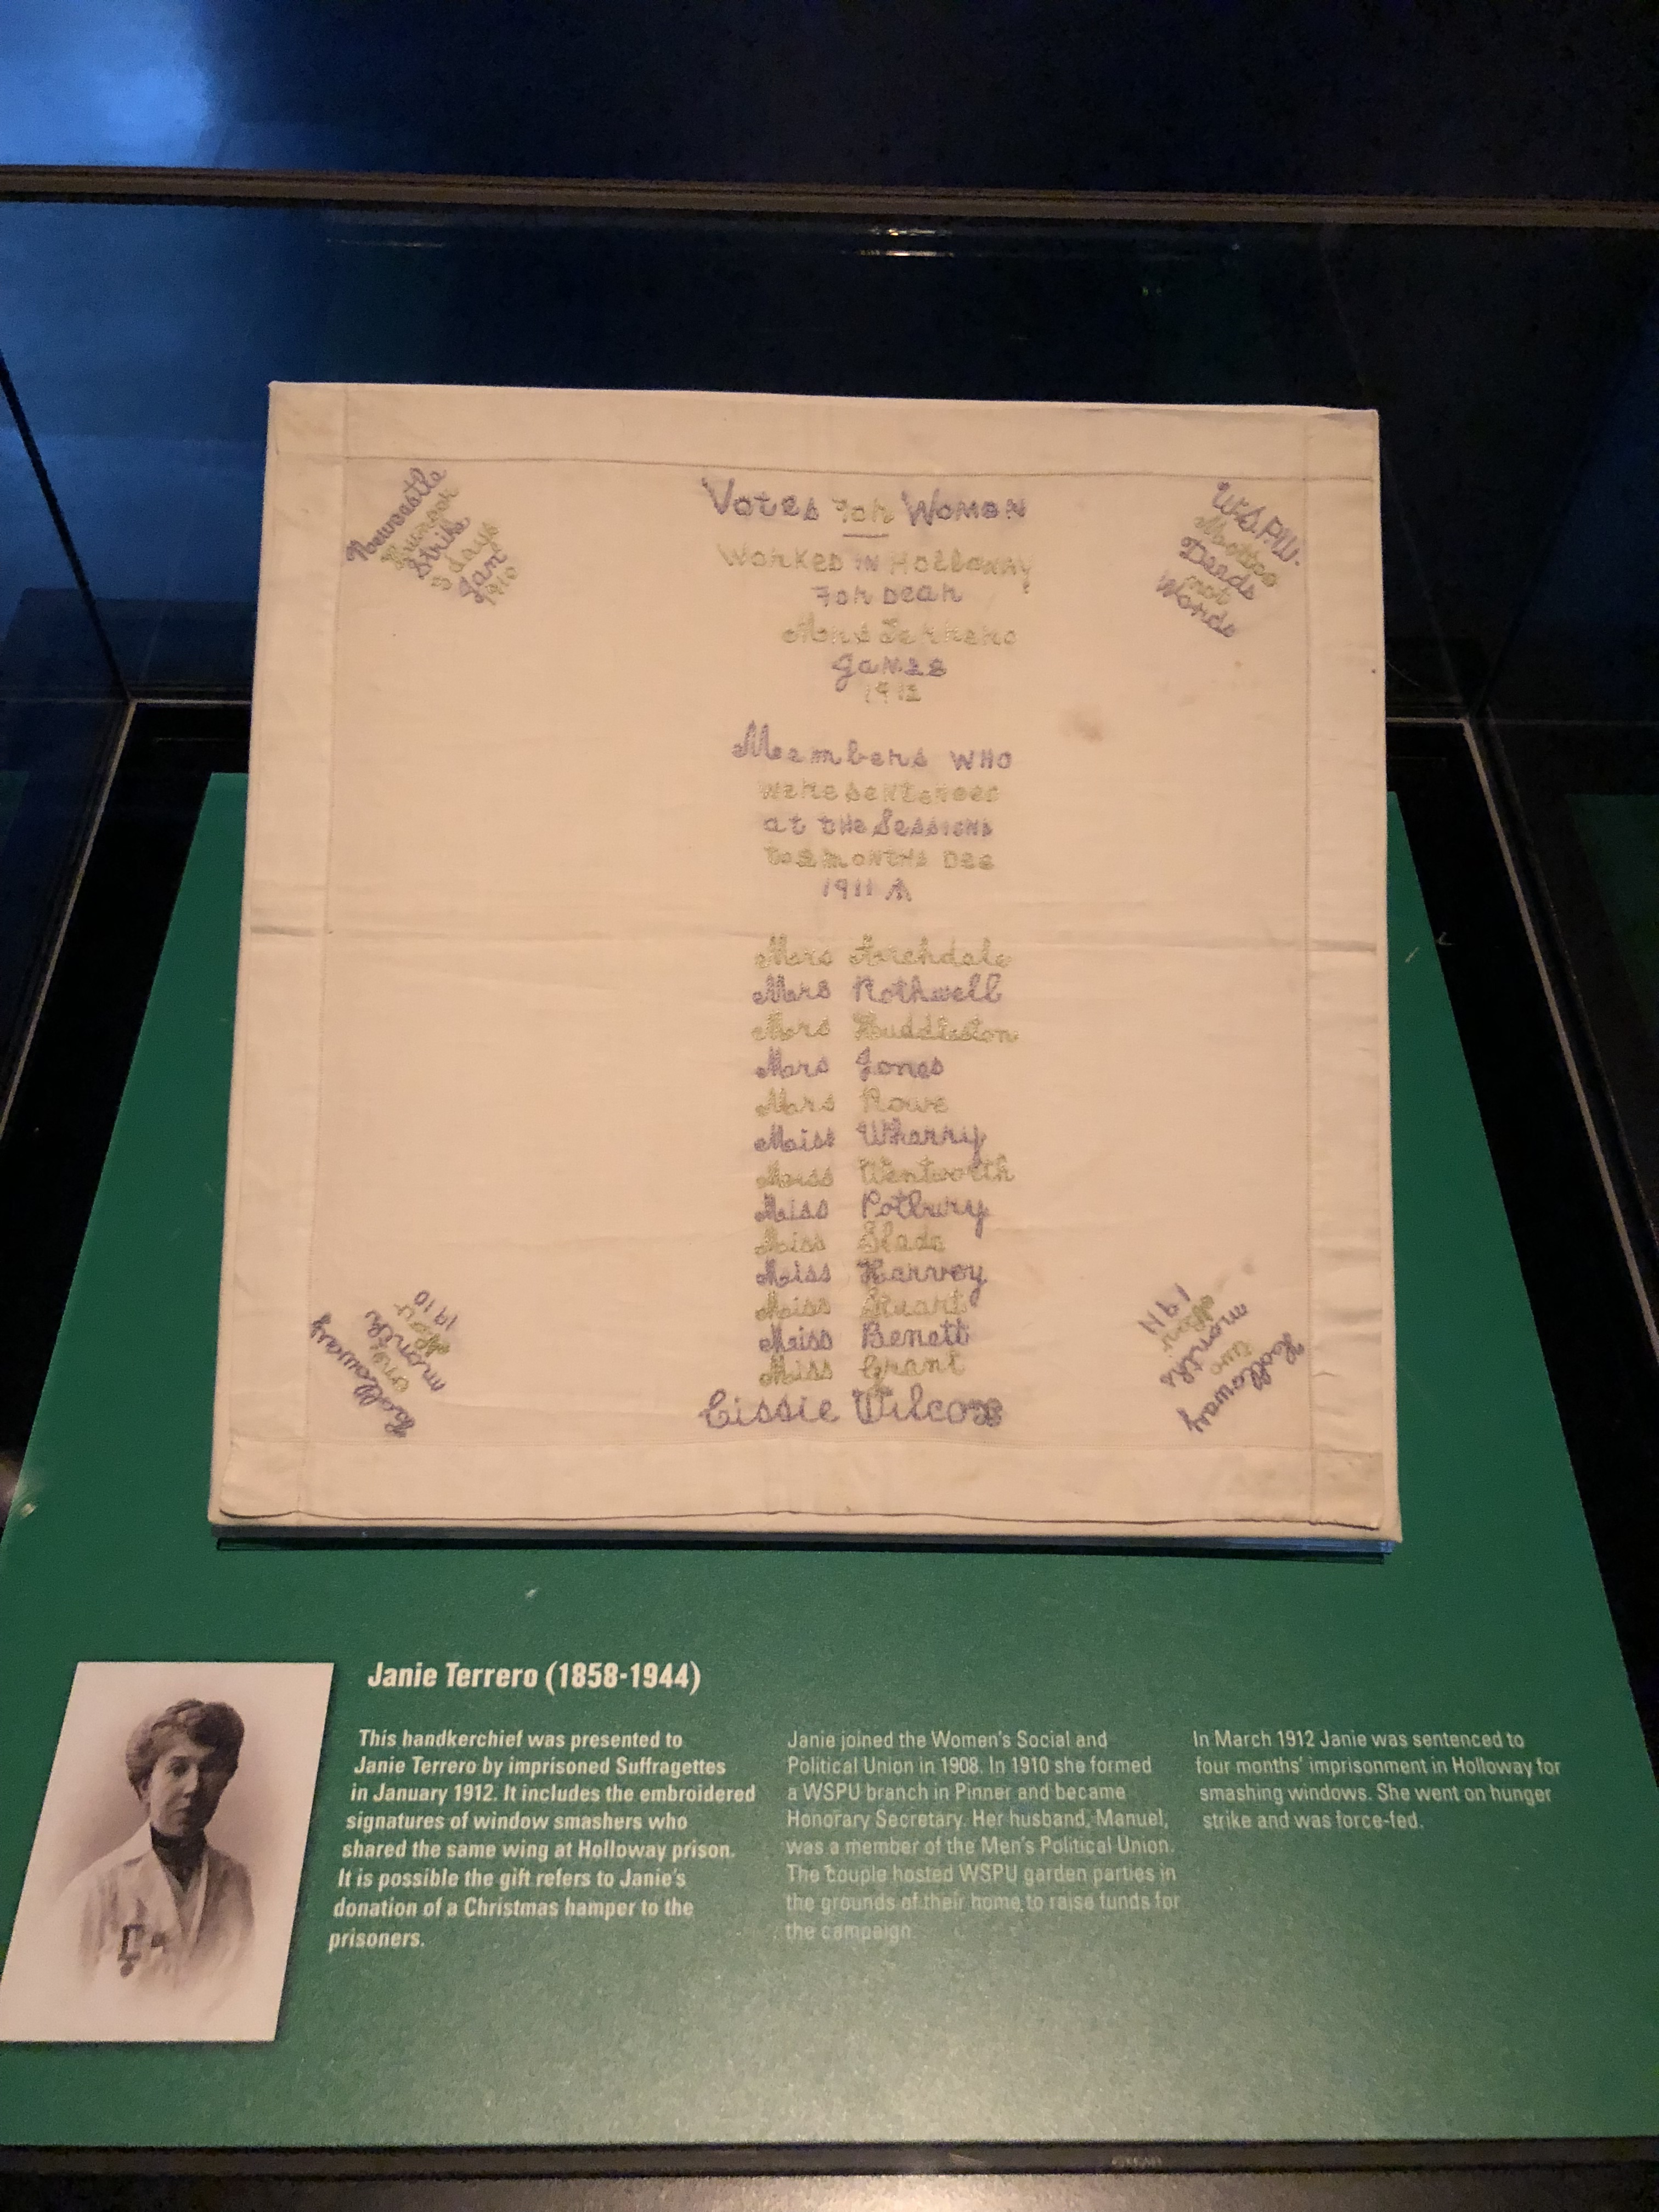 Newcastle
Hunger
Strike
3 days
Jan
1910
Votes for Women
Worked in Holloway
for dear
Mrs Terrero
Jan 28
1912
W.S.P.U.
Motto
Deeds
not
Words
Members who
were sentenced
at the Sessions
to 2 months Dec
1911
Mrs Archdale
Mrs Rothwell
Mrs Huddleston
Mrs Jones
Mrs Rowe
Miss Wharry
Miss Wentworth
Miss Potbury
Miss Slade
Miss Harvey
Miss Stuart
Miss Benett
Miss Grant
Cissie Wilcox
Holloway
one
month
Nov
1910
Holloway
two
months
Nov
1911
Janie Terrero (1858-1944)
This handkerchief was presented to
Janie Terrero by imprisoned Suffragettes
in January 1912. It includes the embroidered
signatures of window smashers who
shared the same wing at Holloway prison.
It is possible the gift refers to Janie's
donation of a Christmas hamper to the
prisoners.
Janie joined the Women's Social and
Political Union in 1908. In 1910 she formed
a WSPU branch in Pinner and became
Honorary Secretary. Her husband, Manuel,
was a member of the Men's Political Union.
The couple hosted WSPU garden parties in
the grounds of their home to raise funds for
the campaign.
In March 1912 Janie was sentenced to
four months' imprisonment in Holloway for
smashing windows. She went on hunger
strike and was force-fed.